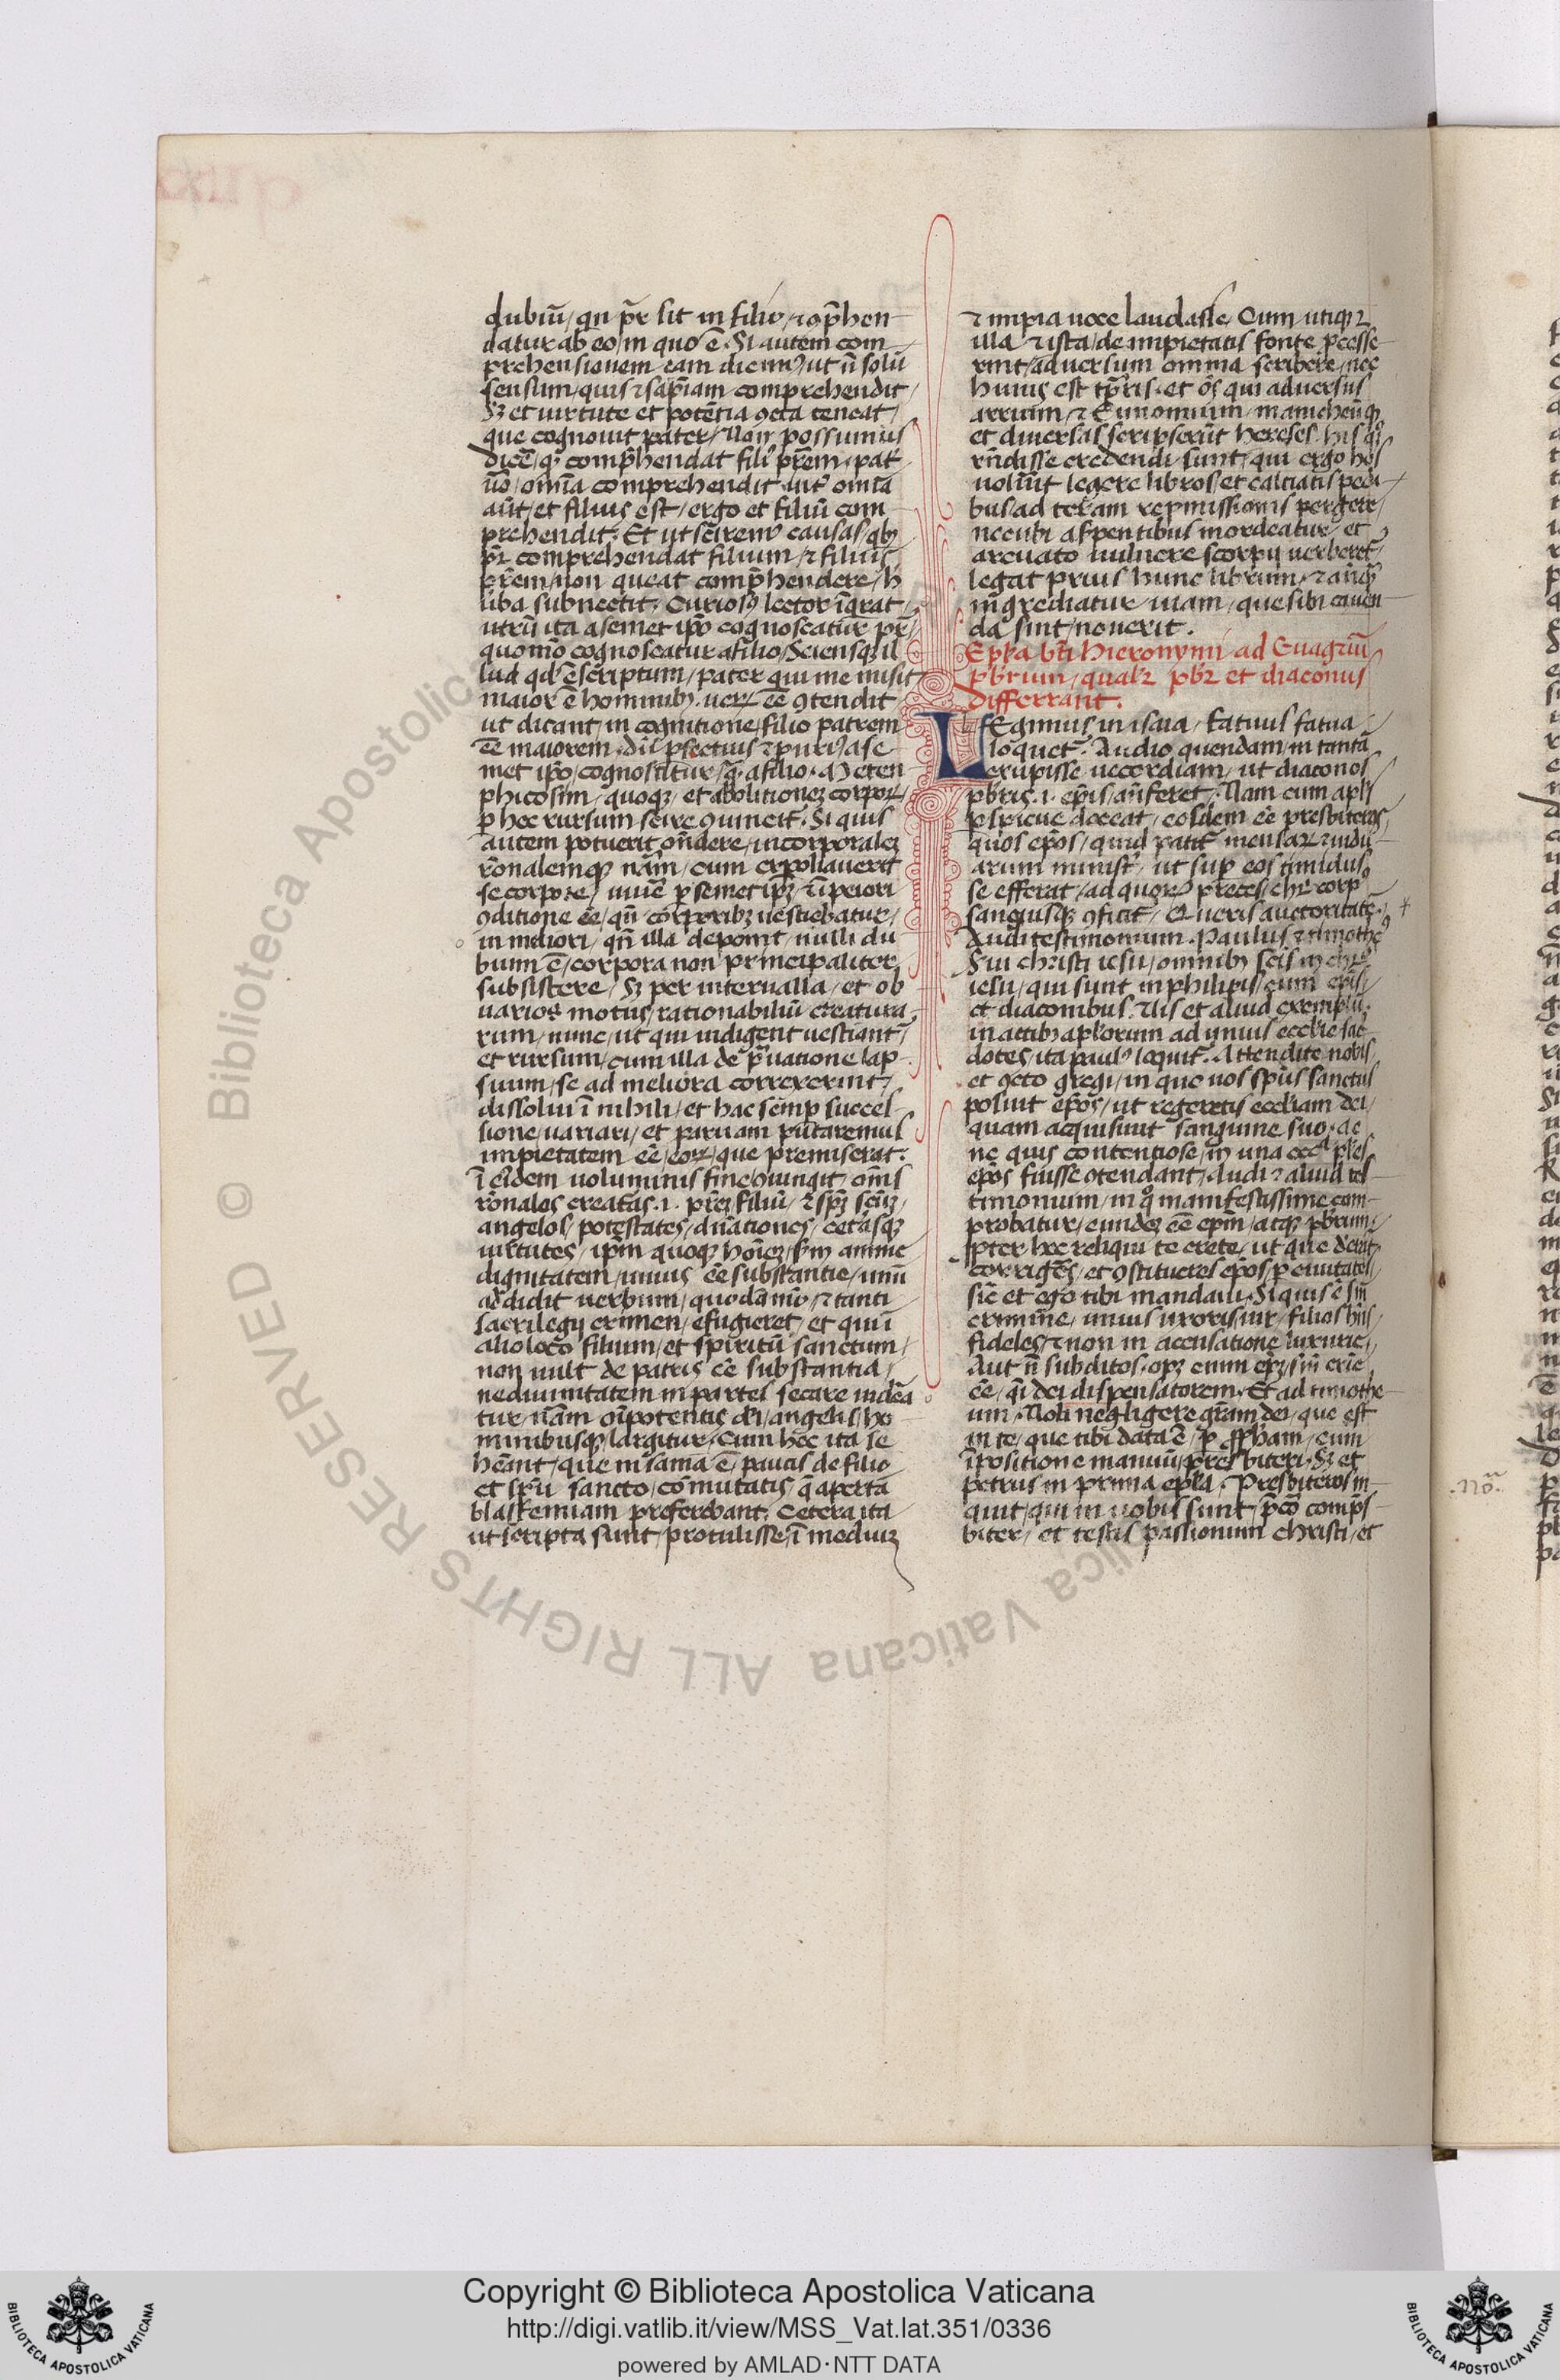 dubiū / qn p̄r sit in filio / ⁊ ꝯp̄hen
datur ab eo / in quo ē. Si autem com
prehensionem eam dicimꝰ / ut n̄ solū
sensum / quis ⁊ sapīam comprehendit
Sꝫ et uirtute et potētia ꝯcta teneat /
que cognouit pater / Non possumus
dicē / qꝫ comp̄hendat filiꝰ pr̄em. pat̄
uō / omīa comprehendit. int̄ omīa
aūt / et filius est / ergo et filiū com
prehendit. Et ut scīremꝰ causas / qbꝫ
pr̄ comprehendat filium / ⁊ filius
pr̄em / non queat comp̄hendere / h̄
u̇ba subnectit. Curiosꝰ lector īqrat
utrū ita a semet ip̄o cognoscatur pr̄ /
quom̄o cognoscatur a filio / Sciensqꝫ il
lud qd̄ ē scriptum / pater qui me misit
maior ē hominibꝫ. ueꝝ ēē ꝯtendit
ut dicant / in cognitione / filio patrem
ēē maiorem. dū pfectius ⁊ puriꝰ a se
met ip̄o / cognoscitur / q̄. a filio. Meten
phicosim / quoqꝫ / et abolitioneꝫ corpoꝝ /
p hec rursum scire ꝯuincit̄. Si quis
autem potuerit on̄dere / incorporaleꝫ
rōnalemqꝫ nām / cum expoliauerit
se corpore / uiuē p semet ip̄ꝫ / ī peiori
ꝯditione ēē / qn̄ corporibꝫ uestiebatur /
in meliori / qn̄ illa deponit / nulli du
bium ē / corpora non principaliter
subsistere / Sꝫ per interualla / et ob
uarios motus / rationabiliū creatura
rum / nunc / ut qui indigent uestiant̄
et rursum / cum illa de p̄uatione lap
suum / se ad meliora correxerint /
dissolui ī nihili / et hac semp succes
sione / uariari / et paruam putaremus
impietatem ēē / eoꝝ / que premiserat.
ī eidem uoluminis fine ꝯiungit / om̄s
rōnales creat̄as. i. pr̄eꝫ filiū / ⁊ spꝫ scm̄ꝫ /
angelos / potestates / dn̄ationes / cet̄asqꝫ
uirtutes / ip̄m quoqꝫ hoīeꝫ / sm̄ anime
dignitatem / unius ēē substantie / unū
addidit uerbum / quodāmō / ⁊ tanti
sacrilegij crimen / efugieret / et qui ī
alio loco filium / et spiritū sanctum /
non uult de patris ēē substantia /
ne diuinitatem in partes secare uidēa
tur / nām om̄potentis dei / angelis / ho
minibusqꝫ / largitur. Cum hec ita se
hēant / que nisania ē / paucis de filio
et spū sancto / cōmutatis / q̄ aperta
blasfemiam preferebant. Cetera ita
ut scripta sunt / protulisse / ī mediuꝫ
⁊ impia uoce laudasse / Cum utiqꝫ ⁊
illa ⁊ ista / de impietatis fonte / pcesse
rint / aduersum omnia scribere / nec
huius est tp̄ris. et oēs qui aduersus
arrium / ⁊ Eunomium / manicheūqꝫ
et diuersas scripserūt hereses. his qꝫ
rn̄disse credendi sunt / qui ergo hos
uolūit legere libros / et calciatis pedi
bus ad terram repmissionis pergere /
necubi a spentibus mordeatur / et
arcuato uulnere scorpij uerberet̄ /
legat prius hunc librum / ⁊ anteqꝫ
ingrediatur uiam / que sibi cauen
da sint / nouerit.
Epl̄a bt̄i hieronymi ad Euagriū
pb̄rum / qualr̄ pb̄r et diaconus
differrant.
LEgimus in isaia / Fatuus fatua
loquet̄. Audio quendam / in tanta
erupisse uecordiam / ut diaconos
pb̄ris. i. ep̄is / an̄feret. Nam cum apl̄s
pspicue doceat / eosdem ēē presbiteros /
quos ep̄os / quid patit̄ mensaꝝ ⁊ uidu
arum minist̄ / ut sup eos timidus
se efferat / ad quoꝝ preces / chr̄ corpꝰ
sanguisqꝫ ꝯficit̄ / Queris auctoritatē.
Audi testimonium. Paulus ⁊ timotheꝰ
Sui christi iesu / omnibꝫ scīs in chrō
iesu / qui sunt in philipis / cum ep̄is /
et diaconibus. Uis et aliud exemplū.
in actibꝫ apl̄orum ad unius ecclīe sac̄
dotes / ita paulꝰ loquit̄. Attendite nobis
et ꝯcto gregi / in quo uos spūs sanctus
posuit ep̄os / ut regeretis eccl̄iam dei /
quam acquisiuit sanguine suo. ac
ne quis contentiose / in una eccl̄ia plēs
ep̄os fuisse ꝯtendant / Audi ⁊ aliud tes
timonium / in qo manifestissime com
probatur / eundeꝫ ēē ep̄m / atqꝫ pb̄rum.
ꝓpter hec reliqui te crete / ut que deerāt
corrigēs / et ꝯstitueres ep̄os / p ciuitates /
sic̄ et ego tibi mandaui. Si quis ē sin̄
crimine / unius uxoris / uir / filios hn̄s /
fideles / ⁊ non in accusatione luxurie /
Aut n̄ subditos. opꝫ enim ep̄ꝫ / sin̄ crīe
ēē / qi dei dispensatorem. Et ad timothe
um. Noli negligere grām dei / que est
in te / que tibi data ē / p ꝓph̄am / cum
īpositione manuū / presbiteri. Sꝫ et
petrus in prima epl̄a. Presbiteros in
quit / qui in uobis sunt / p̄co comp̄s
biter / et testis passionum christi / et
Copyright © Biblioteca Apostolica Vaticana
http://digi.vatlib.it/view/MSS_Vat.lat.351/0336
powered by AMLAD·NTT DATA